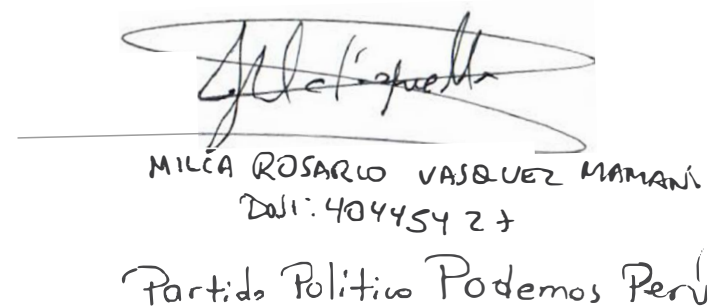 MILCA ROSARIO VASQUEZ MAMANI
DNI: 40445427
Partido Político Podemos Perú